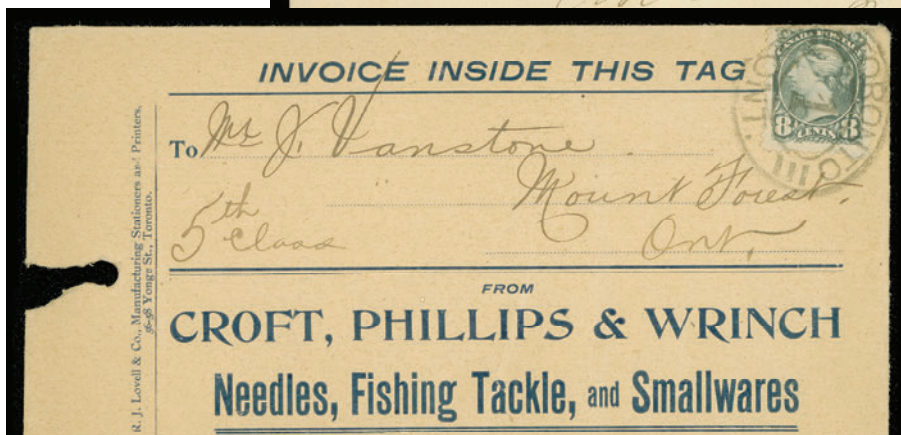 INVOICE INSIDE THIS TAG
To Mr J. Vanstone
Mount Forest.
5th Class
Ont.
FROM
CROFT, PHILLIPS & WRINCH
Needles, Fishing Tackle, and Smallwares
R. J. Lovell & Co., Manufacturing Stationers and Printers,
96-98 Yonge St., Toronto.
CANADA POSTAGE
8 CENTS 8
TORONTO ONT.